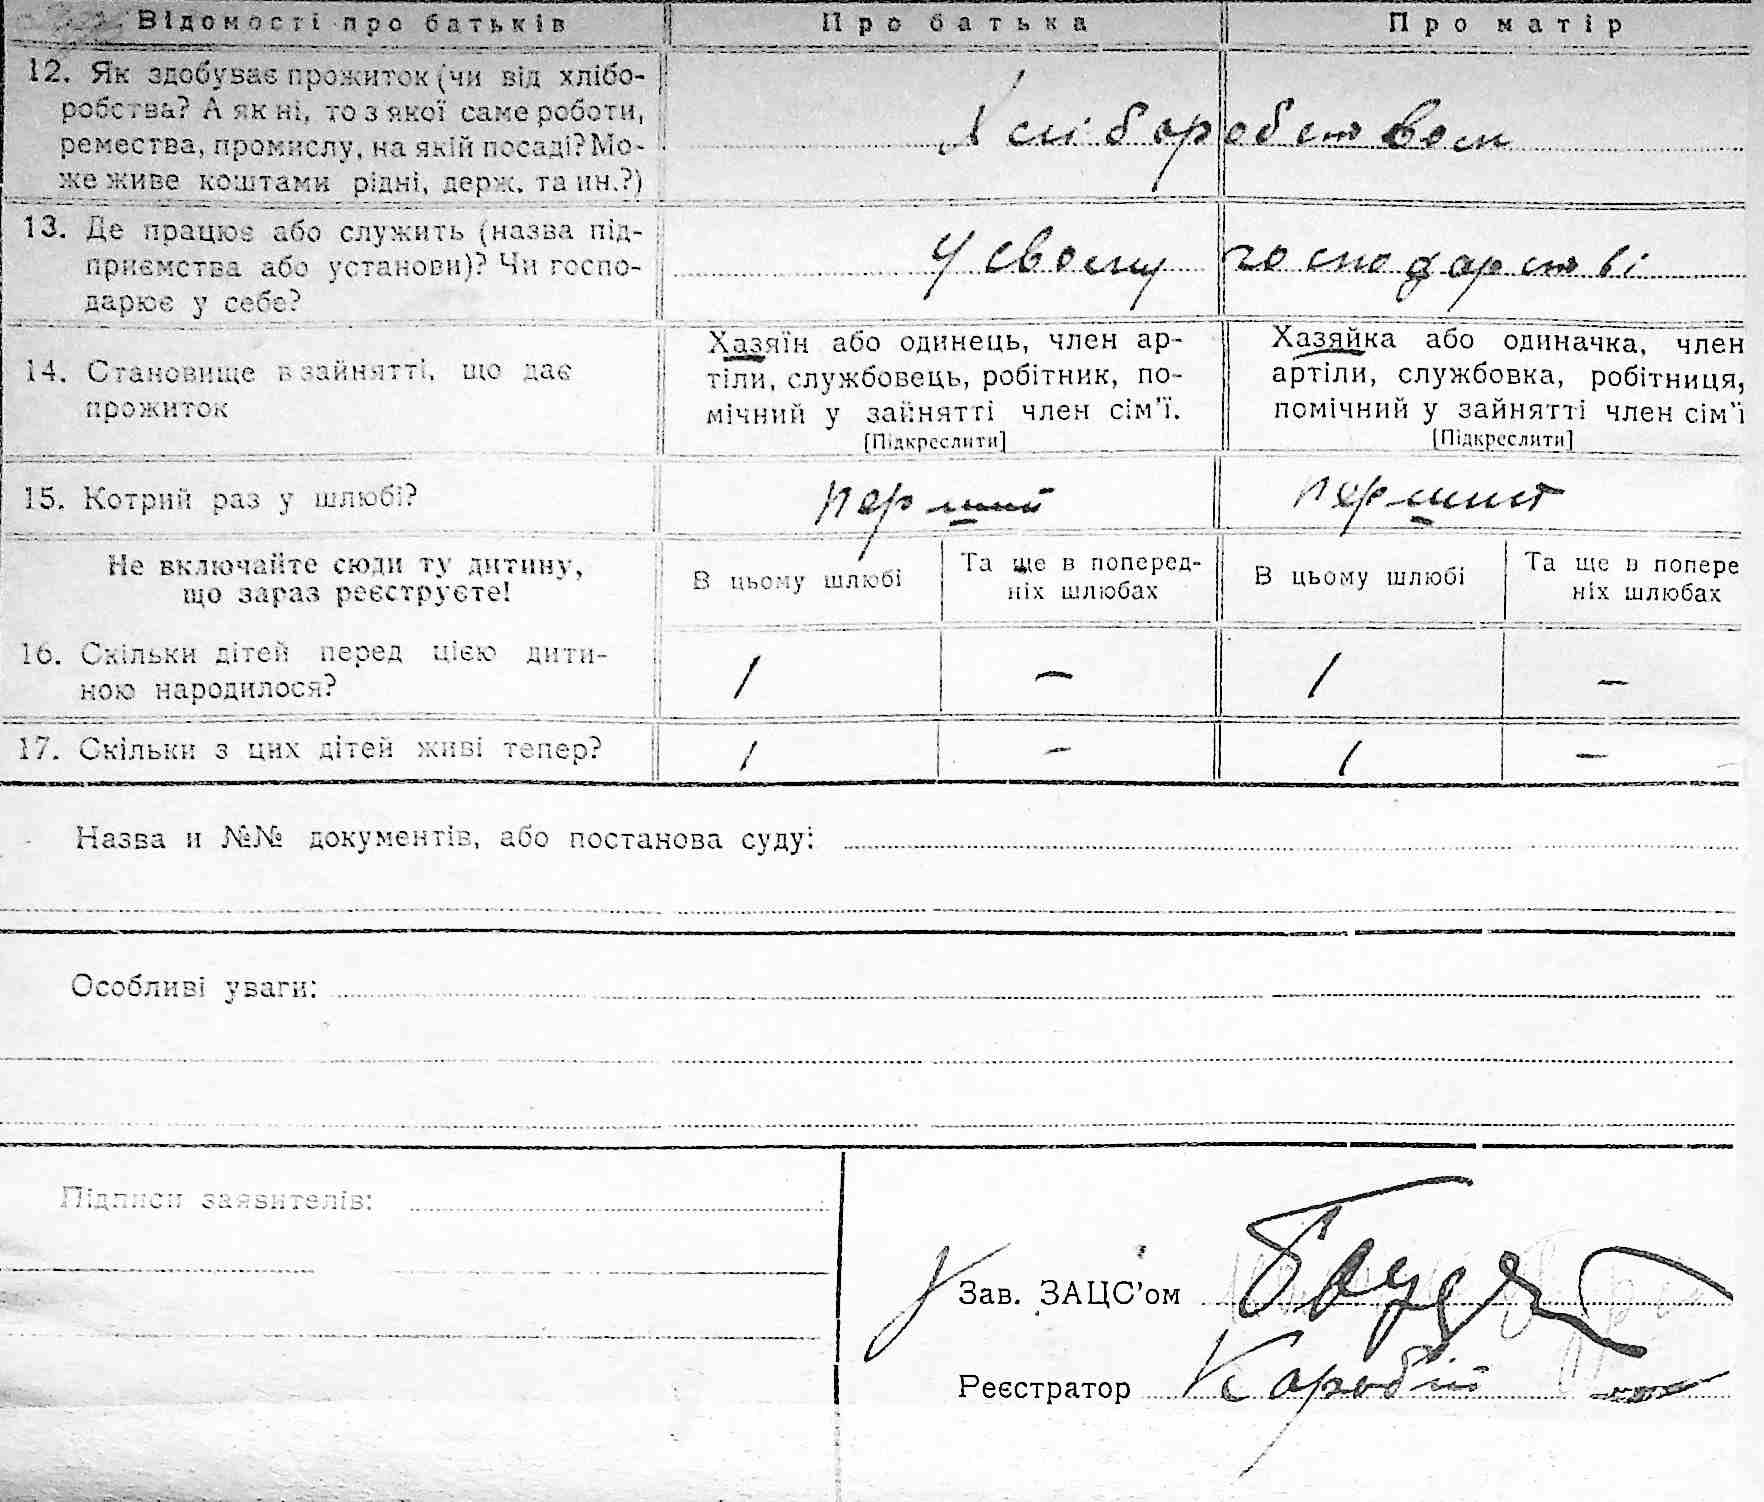 Відомості про батьків Про батька Про матір
12. Як здобуває прожиток (чи від хлібо-
робства? А як ні, то з якої саме роботи,
ремества, промислу, на якій посаді? Мо-
же живе коштами рідні, держ. та ин.?)
Хліборобством
13. Де працює або служить (назва під-
приємства або установи)? Чи госпо-
дарює у себе?
У своєму господарстві
14. Становище в зайнятті, що дає
прожиток
Хазяїн або одинець, член ар-
тіли, службовець, робітник, по-
мічний у зайнятті член сім'ї.
[Підкреслити]
Хазяйка або одиначка, член
артіли, службовка, робітниця,
помічний у зайнятті член сім'ї
[Підкреслити]
15. Котрий раз у шлюбі? перший перший
Не включайте сюди ту дитину,
що зараз реєструєте!
В цьому шлюбі
Та ще в поперед-
ніх шлюбах
В цьому шлюбі
Та ще в попере
ніх шлюбах
16. Скільки дітей перед цією дити-
ною народилося?
1 – 1 –
17. Скільки з цих дітей живі тепер? 1 – 1 –
Назва и №№ документів, або постанова суду:
Особливі уваги:
Підписи заявителів:
Зав. ЗАЦС'ом
Реєстратор